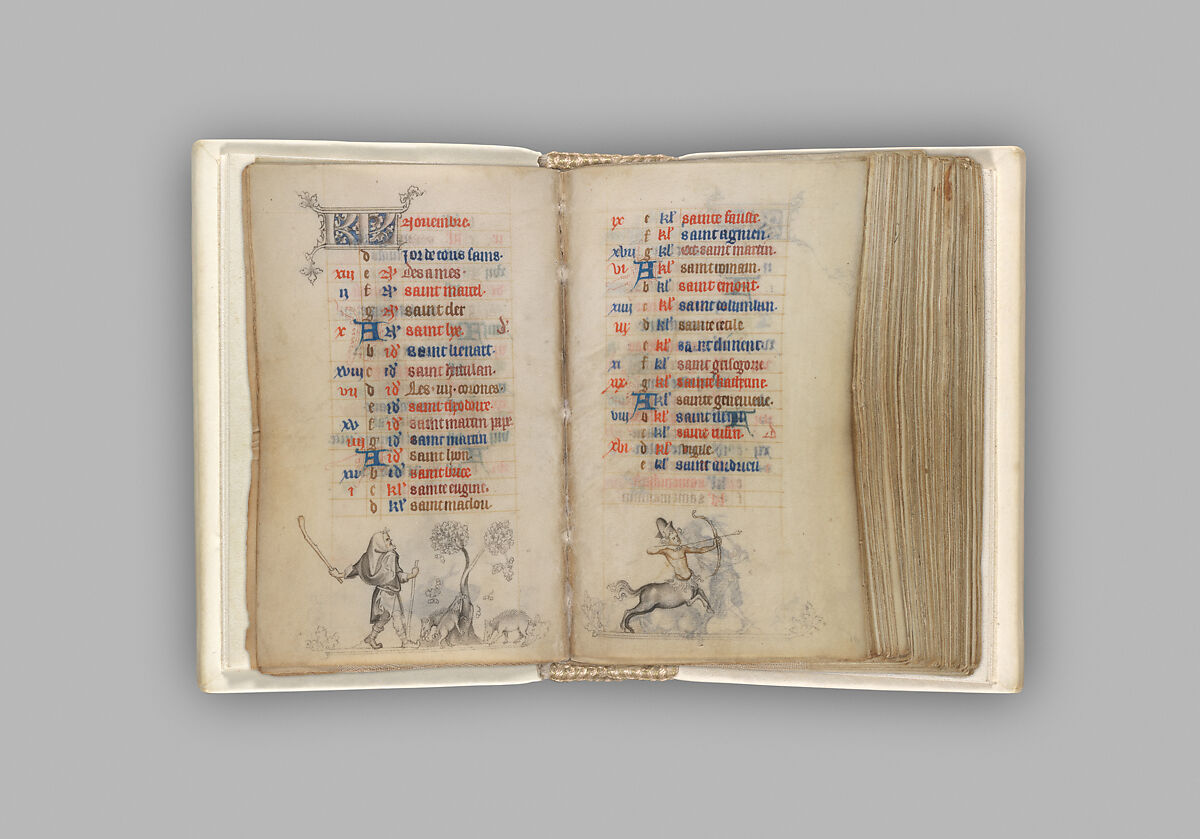 KL Novembre.
d Jor de tous sains.
xiii e N Les ames.
ii f N saint marcel.
g N saint cler
x A N saint lye. d.
b id saint lienart.
xviii c id saint
vii d id Les .iiij. corones.
e id saint theodoire.
xv f id saint martin pape.
iiii g id saint martin
A id saint lyon.
xii b id saint brice
i c kl sainte eugine.
d kl saint maclou.
ix e kl sainte fauste.
f kl saint agnien.
xvii g kl oct saint martin.
vi A kl saint romain.
b kl saint emont.
xiiii c kl saint columban.
iii d kl sainte cecile
e kl saint climent.
xi f kl saint grisogone.
xix g kl sainte katerine.
A kl sainte genevieve.
viii b kl saint
c kl saint vitin.
xvi d kl vigile
e kl saint andrieu